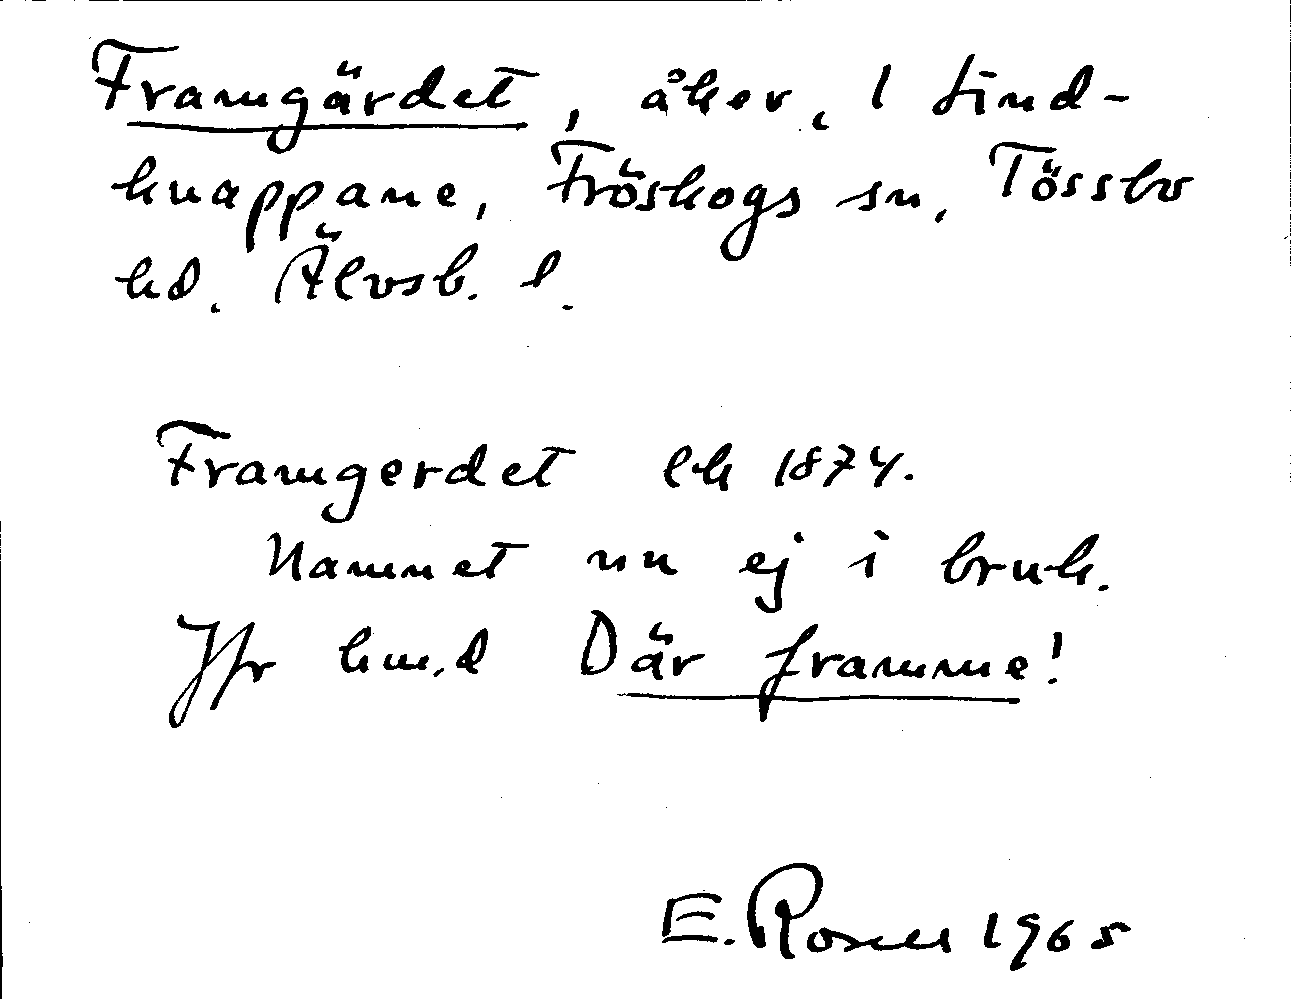 Framgärdet, åker, 1 Lind-
knappane, Fröskogs sn, Tössbo
hd. Älvsb. l.
Framgerdet lk 1874.
Namnet nu ej i bruk.
Jfr hm.d Där framme!
E. Rosell 1965